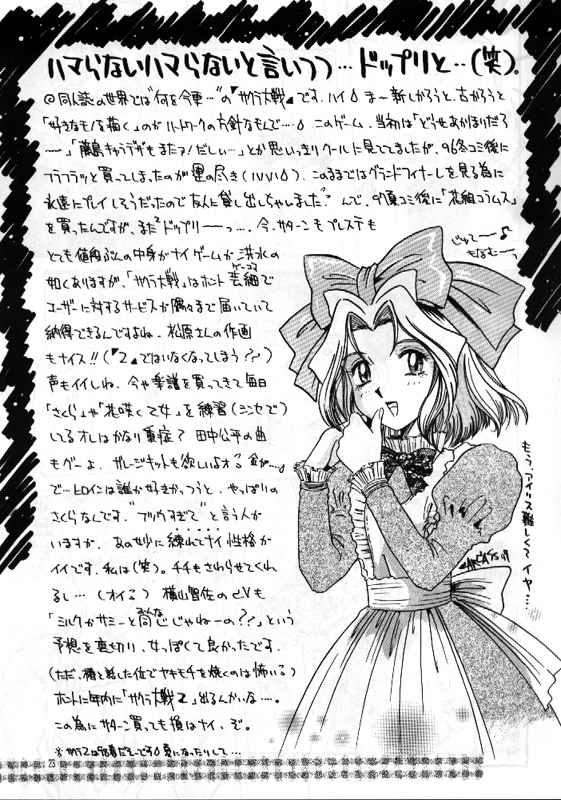 ハマらないハマらないと言いつつ…ドップリと‥(笑)。
◎同人誌の世界では"何を今更…"の『サクラ大戦』です。ハイ💧 まー新しかろうと、古かろうと
「好きなモノを描く」のがハートワークの方針なもんで…💧 このゲーム、当初は「どうせあかほりだろ
ー」「藤島キャラデザもまたァ!だしい…」とか思いっきりクールに見てましたが、96冬コミ後に
フラフラッと買ってしまったのが運の尽き(バババ💧) このままではグランドフィナーレを見る為に
永遠にプレイしそうだったので友人に貸し出しちゃいました。んで、97夏コミ後に「花組コラムス」
を買ったんですが、まだドップリーーっ…。今、サターンもプレステも
とても値段ぶんの中身がナイゲームが洪水の
如くありますが、「サクラ大戦」はホント芸細で
ユーザーに対するサービスが隅々まで届いていて
納得できるんですよね。松原さんの作画
もナイス!!(『2』ではいなくなってしまう??)
声もイイしね。今や楽譜を買ってきて毎日
「さくら」や「花咲く乙女」を練習(シンセで)
してるオレはかなり重症? 田中公平の曲
もグーよ。ガレージキットも欲しいよオる 金が…💧
で…ヒロインは誰が好きかっつうと、やっぱりの
さくらなんです。"フツウすぎて"と言う人が
いますが、あの妙に練れてナイ性格が
イイです。私は(笑)。チチもさわらせてくれ
るし…(オイ💧) 横山智佐のCVも
「ミルクがサミーと同じじゃねーの??」という
予想を裏切り、女っぽくて良かったです。
(ただ、椿と話した位でヤキモチを焼くのは怖いる)
ホントに年内に「サクラ大戦2」出るんかいな…。
この為にサターン買っても損はナイ、ぞ。
じゅてーむ♪
もなむーっ
もう、アイリス難しくてイヤ…
23